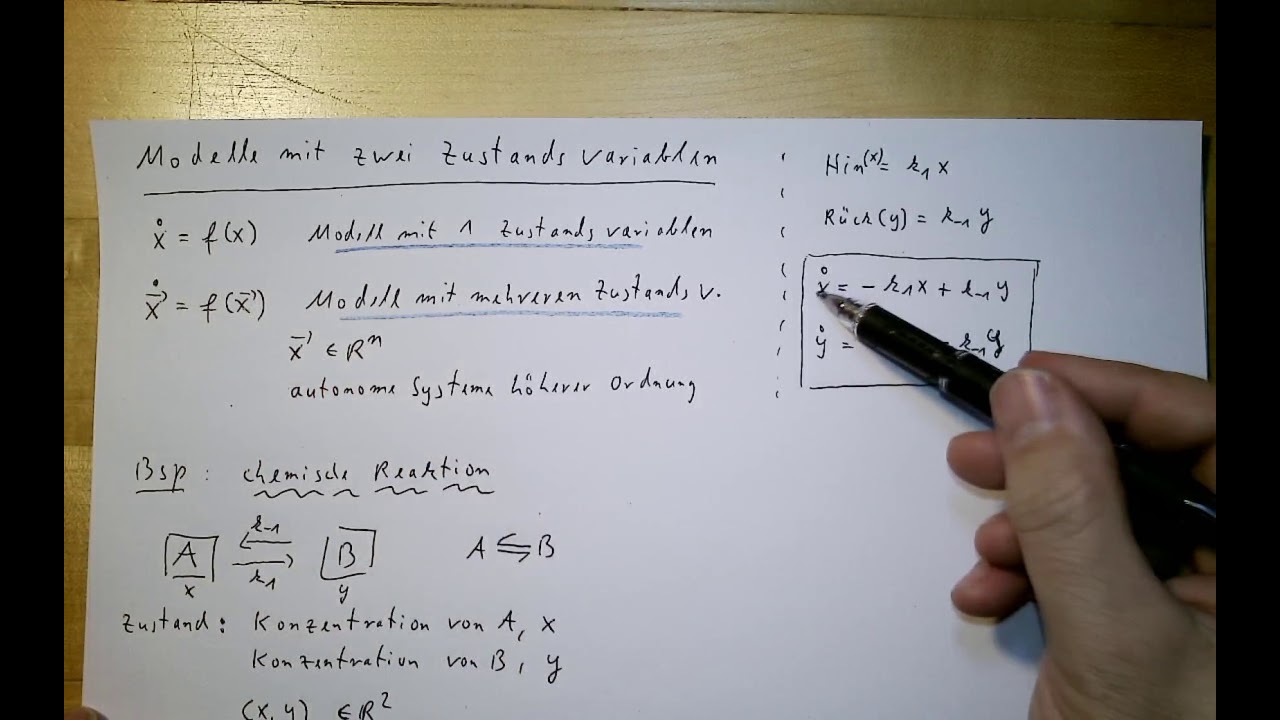 Modelle mit zwei Zustandsvariablen
ẋ = f(x) Modell mit 1 Zustandsvariablen
ẋ⃗ = f(x⃗) Modell mit mehreren Zustands v.
x⃗ ∈ ℝⁿ
autonome Systeme höherer Ordnung
Bsp: chemische Reaktion
k₋₁
A ⇆ B A ⇆ B
k₁
x y
Zustand: Konzentration von A, x
Konzentration von B, y
(x, y) ∈ ℝ²
Hin(x) = k₁ x
Rück(y) = k₋₁ y
ẋ = - k₁x + k₋₁ y
ẏ = - k₋₁y